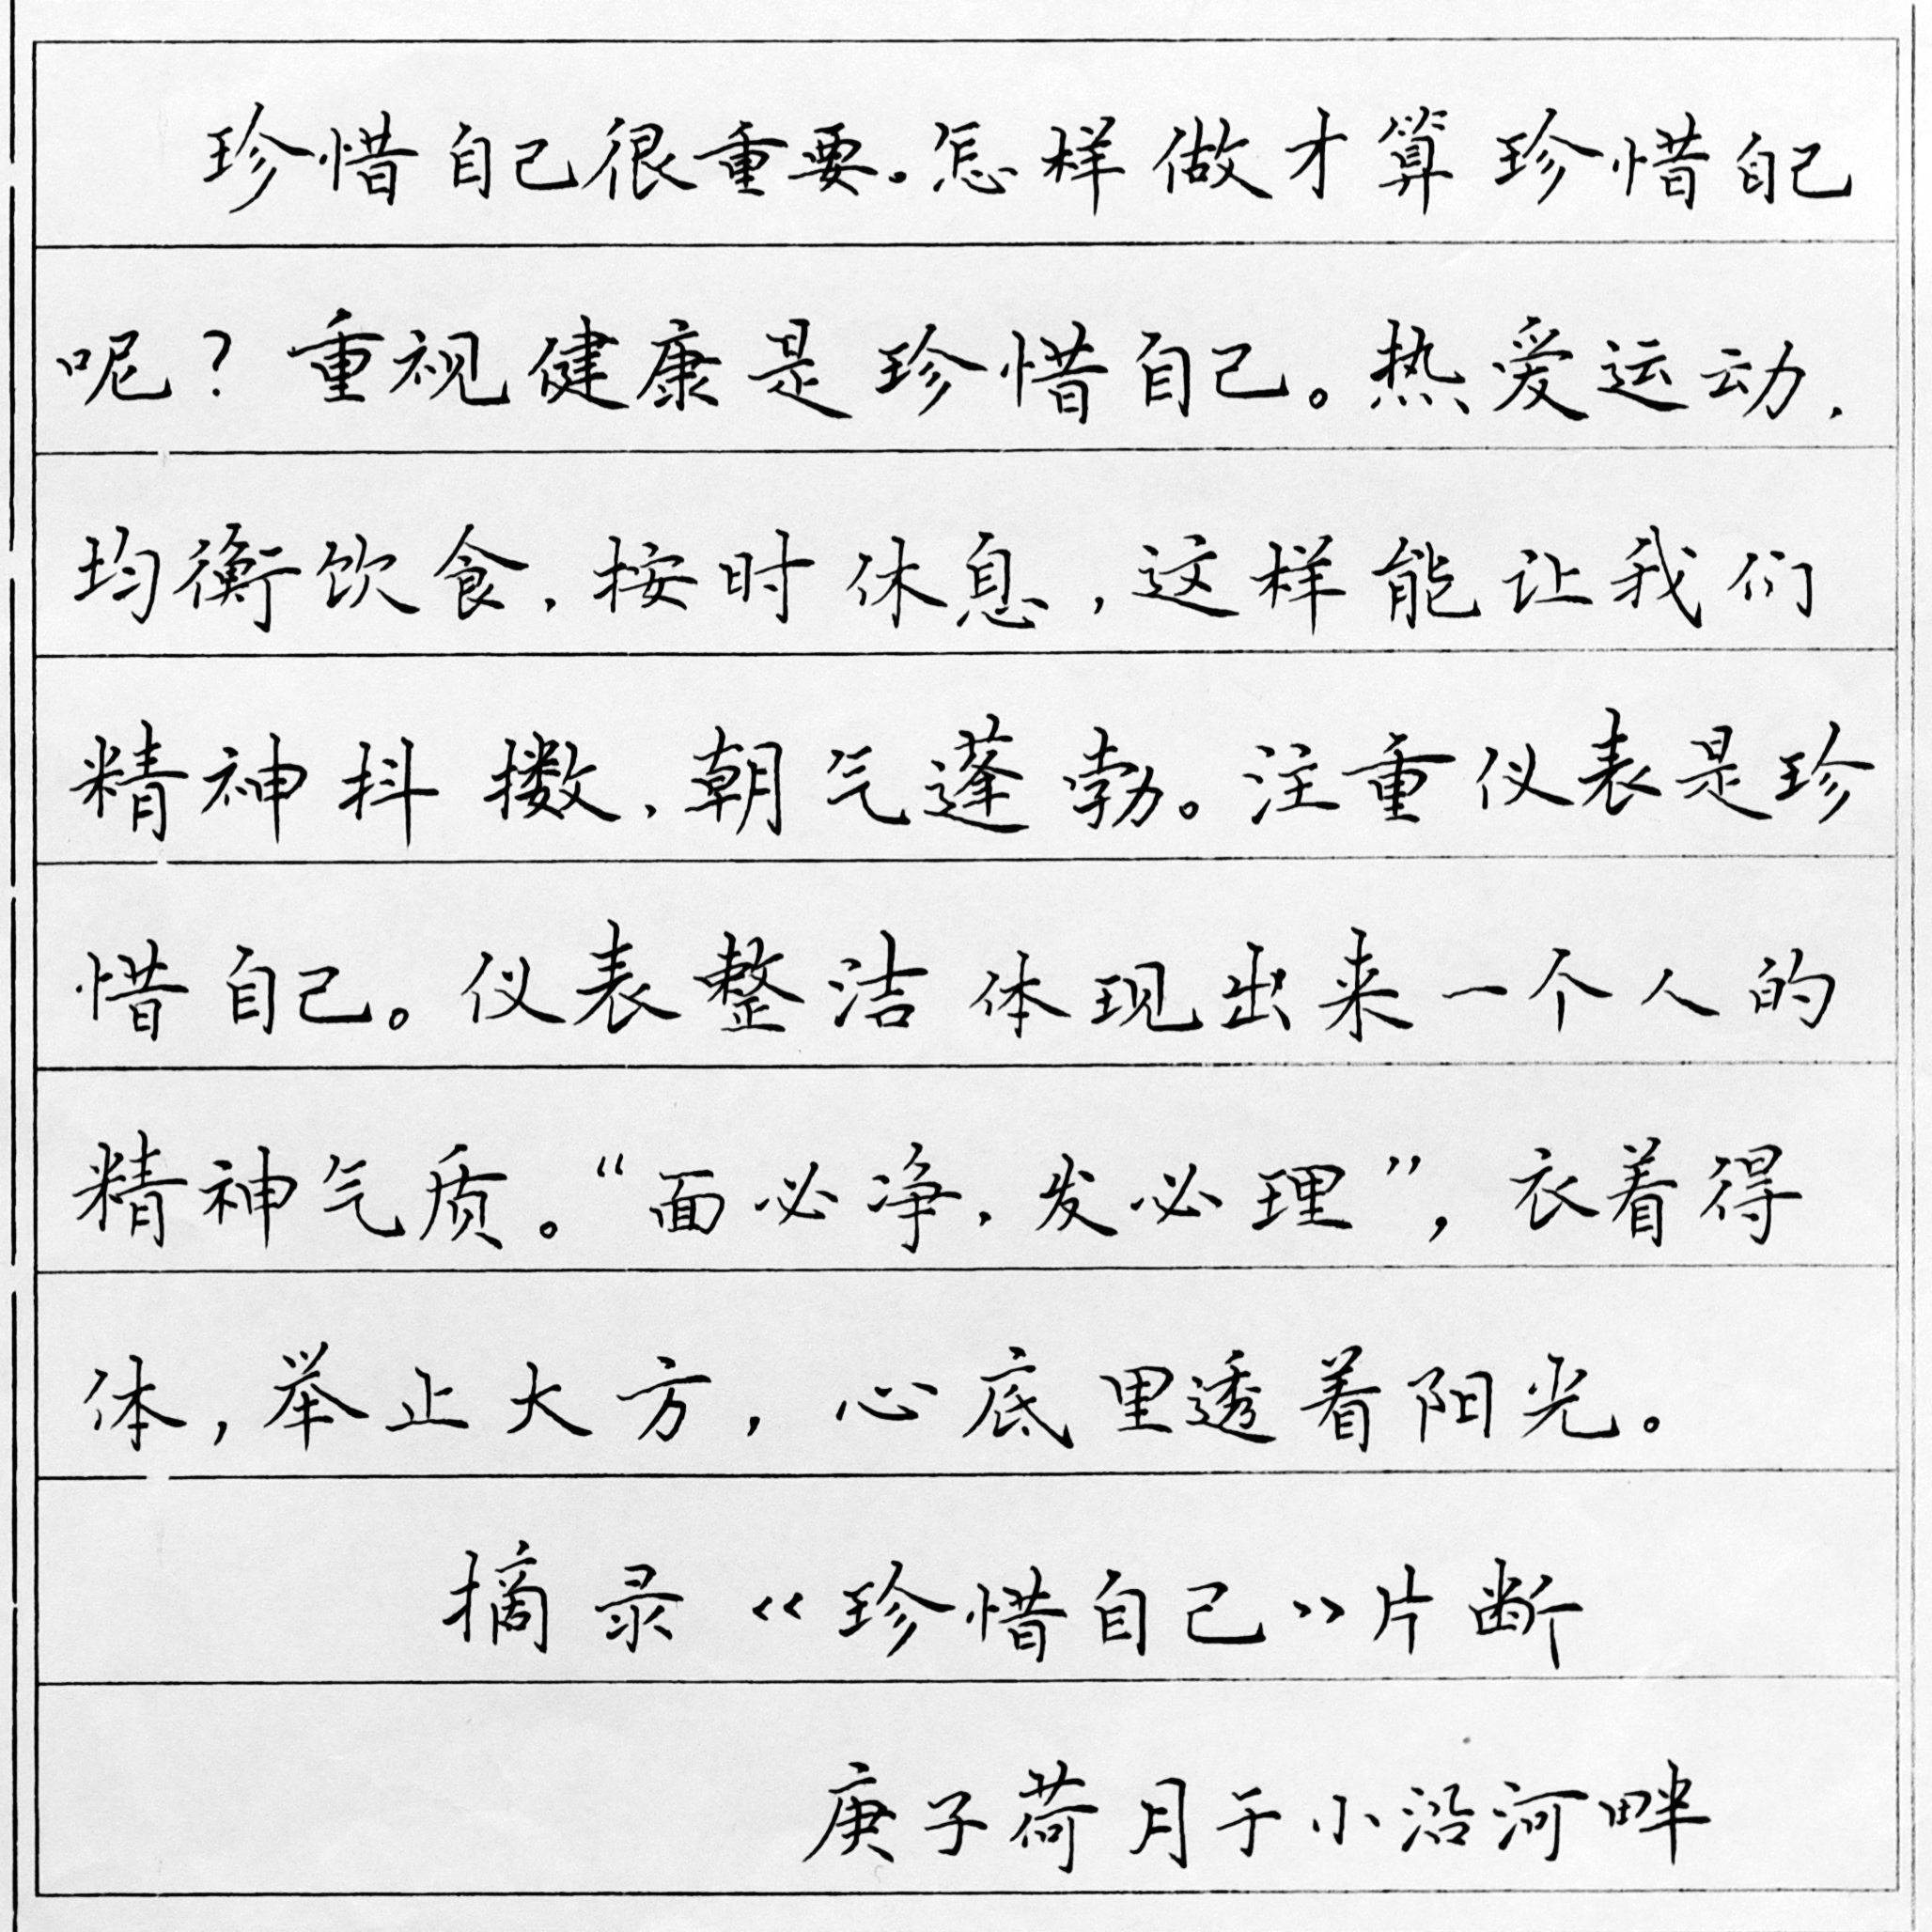 珍惜自己很重要。怎样做才算珍惜自己
呢？重视健康是珍惜自己。热爱运动，
均衡饮食，按时休息，这样能让我们
精神抖擞，朝气蓬勃。注重仪表是珍
惜自己。仪表整洁体现出来一个人的
精神气质。“面必净，发必理”，衣着得
体，举止大方，心底里透着阳光。
摘录《珍惜自己》片断
庚子荷月于小沿河畔